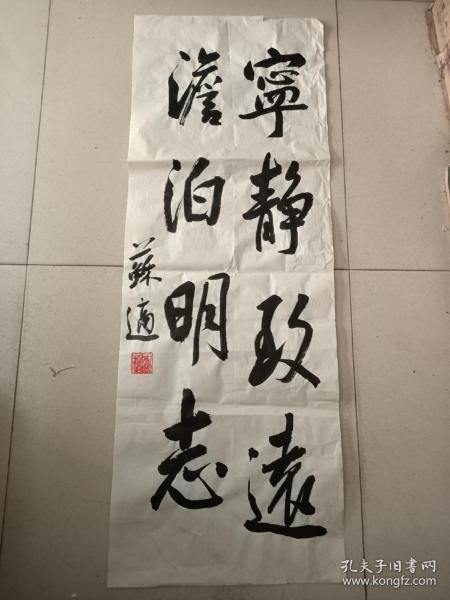 寧靜致遠
澹泊明志
蘇適
孔夫子旧书网
www.kongfz.com